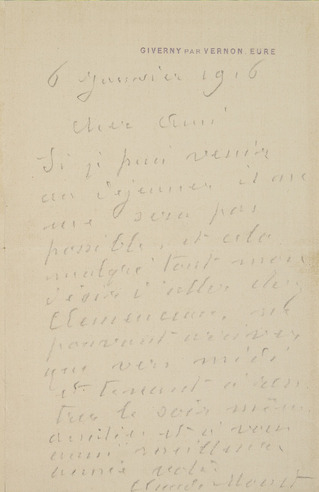 GIVERNY PAR VERNON. EURE
6 Janvier 1916
Cher Ami
Si je puis venir
au déjeuner il ne
me sera pas
possible, et cela
malgré tout mon
désir d'aller chez
Clemenceau, ne
pouvant arriver
que vers midi
et tenant à ren
trer le soir même
amitiés et à vous
année votre
Claude Monet